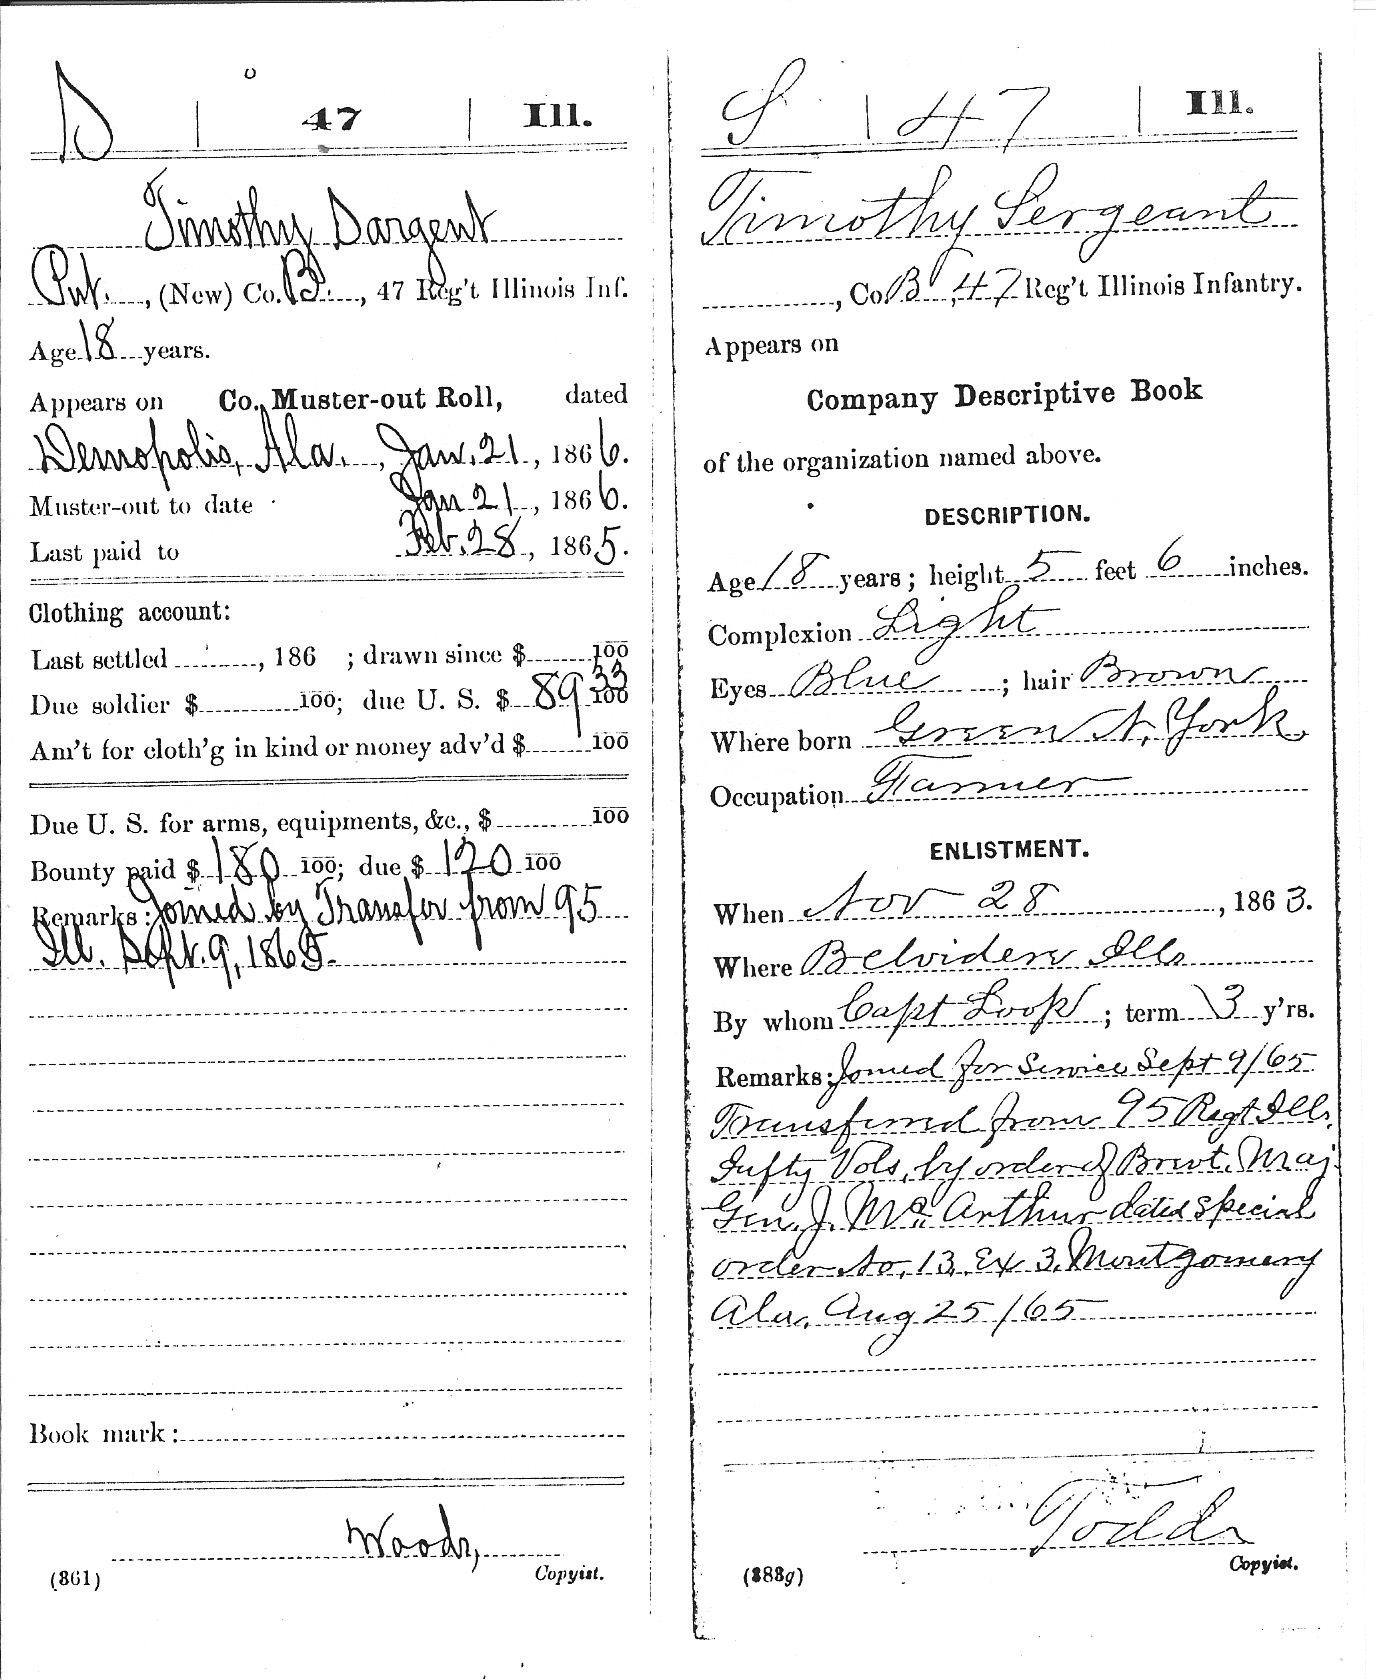 S | 47 | Ill.
Timothy Sargent
Pvt., (New) Co. B., 47 Reg't Illinois Inf.
Age 18 years.
Appears on Co. Muster-out Roll, dated
Demopolis, Ala., Jan. 21, 1866.
Muster-out to date Jan 21, 1866.
Last paid to Feb. 28, 1865.
Clothing account:
Last settled , 186 ; drawn since $ 100
Due soldier $ 100; due U. S. $ 89 33/100
Am't for cloth'g in kind or money adv'd $ 100
Due U. S. for arms, equipments, &c., $ 100
Bounty paid $ 180 100; due $ 120 100
Remarks: Joined by Transfer from 95
Ill. Sept. 9, 1865.
Book mark:
Woods,
(861) Copyist.
S | 47 | Ill.
Timothy Sergeant
, Co. B, 47 Reg't Illinois Infantry.
Appears on
Company Descriptive Book
of the organization named above.
DESCRIPTION.
Age 18 years; height 5 feet 6 inches.
Complexion Light
Eyes Blue ; hair Brown
Where born Green N. York
Occupation Farmer
ENLISTMENT.
When Nov 28, 1863.
Where Belvidere Ills
By whom Capt Loop ; term 3 y'rs.
Remarks: Joined for Service Sept 9/65
Transferred from 95 Regt Ills.
Infty Vols, by order of Brevt. Maj.
Gen. J. Mc. Arthur dated Special
order No. 13, Ex 3, Montgomery
Ala, Aug 25/65
Todd
(383g) Copyist.